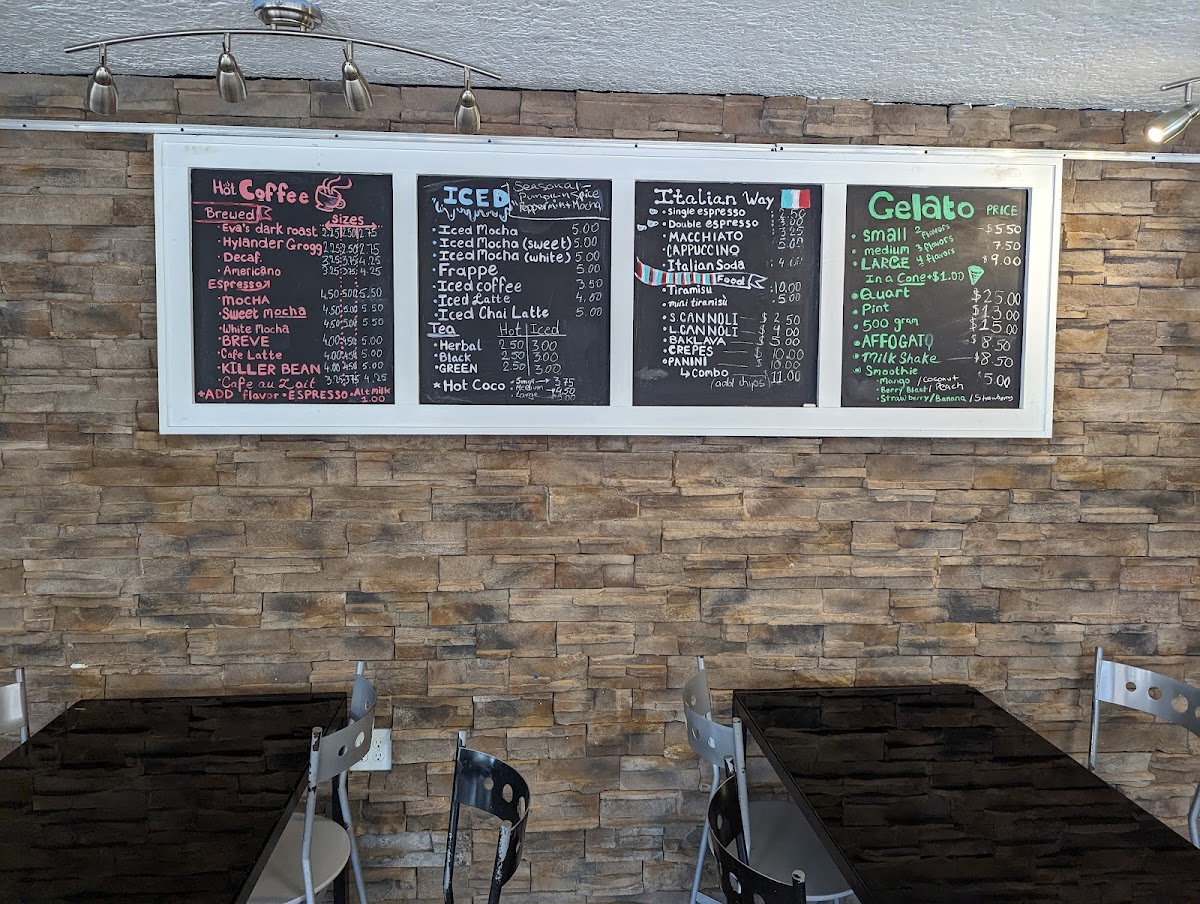 Hot Coffee
Brewed
sizes
• Eva's dark roast 2.25 2.50 2.75
• Hylander Grogg 2.25 2.50 2.75
• Decaf.
• Americano 3.25 3.75 4.25
Espresso
• MOCHA 4.50 5.00 5.50
• Sweet mocha 4.50 5.00 5.50
• White Mocha 4.50 5.00 5.50
• BREVE 4.00 4.50 5.00
• Cafe Latte 4.00 4.50 5.00
• KILLER BEAN 4.00 4.50 5.00
• Cafe au Lait 3.25 3.75 4.25
*ADD flavor • ESPRESSO • Alt milk
1.00
ICED
Seasonal -
Pumpkin Spice
Peppermint Mocha
• Iced Mocha 5.00
• Iced Mocha (sweet) 5.00
• Iced Mocha (white) 5.00
• Frappe 5.00
• Iced coffee 3.50
• Iced Latte 4.00
• Iced Chai Latte 5.00
Tea Hot Iced
• Herbal 2.50 3.00
• Black 2.50 3.00
• GREEN 2.50 3.00
* Hot Coco • Small → 3.75
• Medium → 4.50
• Large → 5.00
Italian Way
• single espresso 2.50
• Double espresso 3.00
• MACCHIATO 3.25
• CAPPUCCINO 5.00
• Italian Soda
Food
• Tiramisu 10.00
• mini tiramisù 5.00
• S.CANNOLI — $ 2.50
• L.CANNOLI — $ 4.00
• BAKLAVA
• CREPES 10.00
• PANINI — 10.00
↳ Combo 11.00
(add chips)
Gelato PRICE
• small 2 flavors - $5.50
• medium 3 flavors 7.50
• LARGE 4 flavors $9.00
In a Cone +$1.00
• Quart $25.00
• Pint $13.00
• 500 gram $15.00
• AFFOGATO $8.50
• Milk Shake $8.50
• Smoothie
• Mango / Coconut $5.00
• Berry Blast / Peach
• Strawberry/Banana / Strawberry